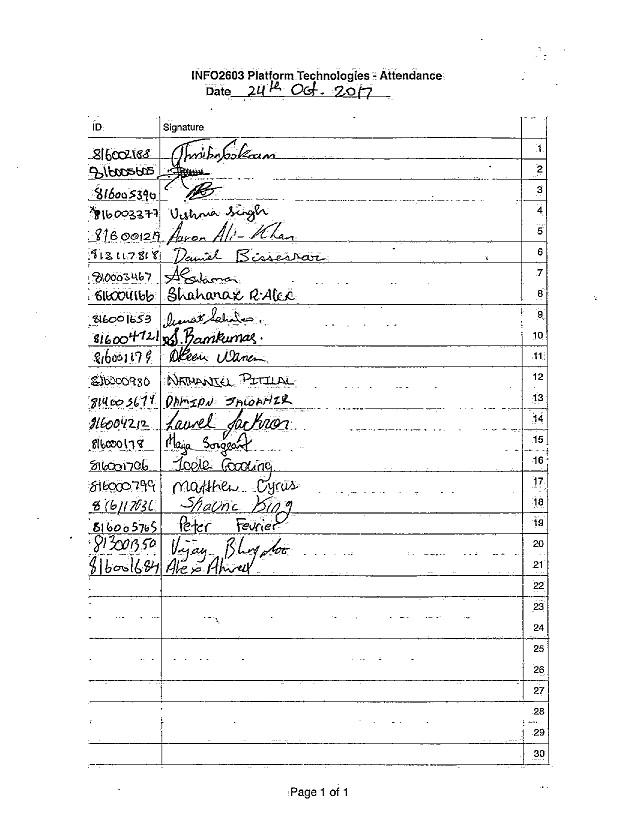 INFO2603 Platform Technologies - Attendance
Date 24th Oct. 2017
ID Signature
816002188 1
2
816005390 3
816003377 Vishnia Singh 4
Aaron Ali-Khan 5
813117818 Daniel Bissessar 6
810003467 7
816004166 Shahanaz R-Alex 8
816001659 9
816004721 S. Ramkumar. 10
816001179 11
816000980 NATHANIEL PITILAL 12
814003679 DAMION 13
816004212 Laurel Jackson 14
816000178 Maya Sorgeant 15
816001706 Gooding 16
816000799 Matthew Cyrus 17
King 18
816005765 Peter Fevrier 19
Vijay 20
816001684 21
22
23
24
25
26
27
28
29
30
Page 1 of 1